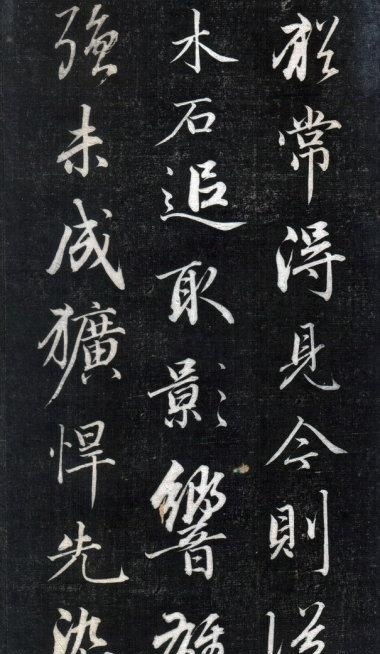 猶常得見今則從
木石追取影響雖
強未成獷悍先染